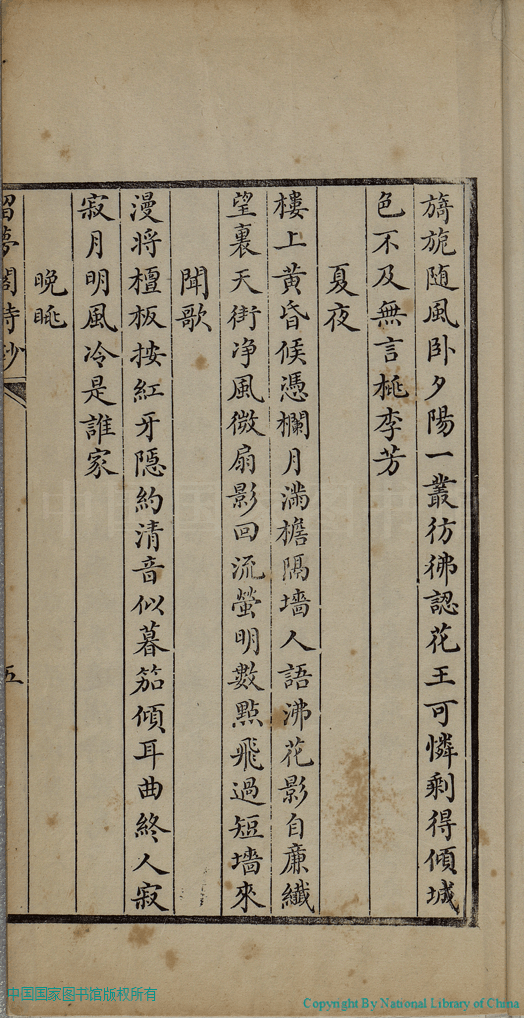 旖旎随風卧夕陽一叢彷彿認花王可憐剩得傾城
色不及無言桃李芳
夏夜
樓上黄昏候憑欄月滿檐隔墻人語沸花影自亷纖
望裏天街净風微扇影回流螢明數點飛過短墻來
聞歌
漫將檀板按紅牙隠約清音似暮笳傾耳曲終人寂
寂月明風冷是誰家
晩眺
留夢閣詩鈔
五
中国国家图书馆版权所有
Copyright By National Library of China